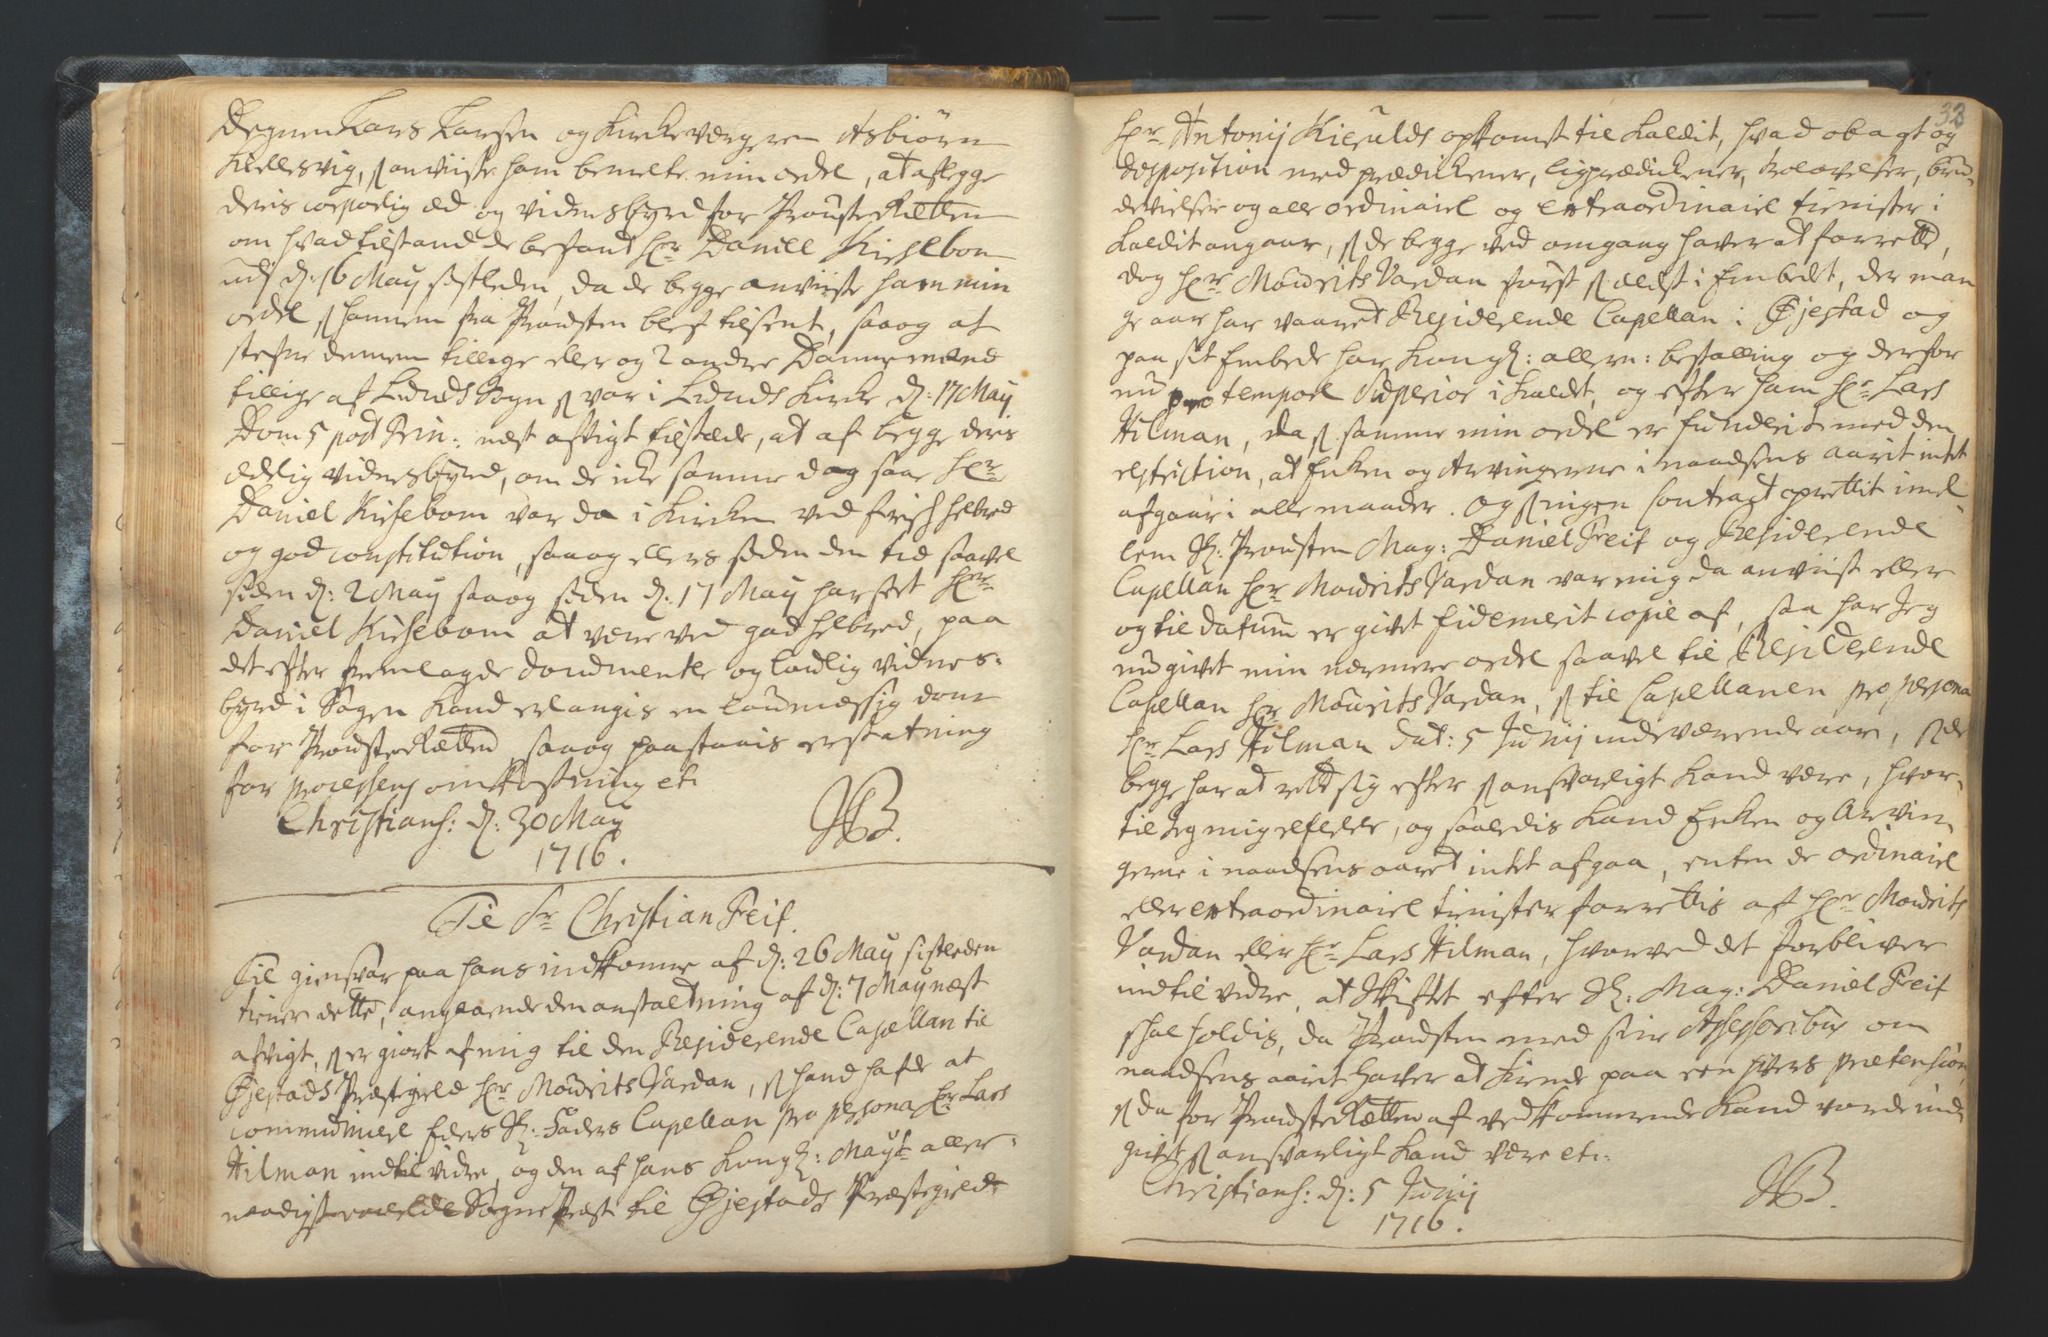 Degnen Lars Larsen og Kirkeværgeren Asbiørn
Killesvig, som viiste ham bemelte min ordre, at aflegge
deris corporlig æd og vidnesbyrd for Prouste Retten
om hvad tilstand de befandt Hr Daniel Kirsebom
udj d: 16 May sistleden, da de begge anviiste ham min
ordre som hannem fra Proústen blef tilsent, saa og at
stefne dennem tillige eller og 2 andre Dannemænd
tillige af Sogn som var i Kirke d: 17 May
Dom 5 post Trin: nest afvigt tilstæde, at af begge deris
edelig vidnesbyrd, om de icke samme dag saae Hr
Daniel Kirsebom var da i Kircken ved frisch helbred
og god constitution, saa og ellers siden den tid saavel
siden d: 2 May saa og siden d: 17 May har seet Hr
Daniel Kirsebom at være ved god helbred, paa
det efter fremlagde documenter og lovlig vidnes-
byrd i Sagen kand erlangis en loumessig dom
for ProústeRetten saa og paastaais erstatning
for processens omkostning etc
Christians: d: 30 May
1716. JB.
Til Sr Christian Freis.
Til giensvar paa hans indkomne af d: 26 May sistleden
tiener dette, angaaende den anstaltning af d: 7 May næst
afvigt, som er giort af mig til den Residerende Capellan til
Øjestads Præstegield Hr Mouritz Vardan, som hand hafde at
communicere Eders Sl: Faders Capellan pro persona Hr Lars
Hilman indtil vidre, og den af hans Kongl: Mayt aller-
naadigst SognePræst til Øjestads Præstegield
32
Hr Antonij Kierulds opkomst til Kaldit, hvad obagt og
disposition med prædickener, ligprædickener, trolovelser, brú-
devielser og alle ordinaire og extraordinaire tienister i
Kaldit angaar, som de begge ved omgang haver at forrette,
dog Hr Mouritz Vardan først som ældst i Embedet, der man-
ge aar har vaaret Residerende Capellan i Øjestad og
paa sit Embede har Kongl: allern: bestalling og derfor
nu pro tempore superior i Kaldet, og efter ham Hr Lars
Hilman, da som samme min ordre er funderit med den
restriction, at Enken og Arvingerne i naadsens aarit intet
afgaar i alle maader. Og som ingen Contract oprettit imel-
lem Sl: Proústen Mag: Daniel Freis og Residerende
Capellan Hr Mouritz Vardan var mig da anviist eller
og til datum er givet fidemerit copie af, saa har Jeg
nu givet min nærmere ordre saavel til Residerende
Capellan Hr Mouritz Vardan, som til Capellanen pro persona
Hr Lars Hilman dat: 5 Junij indeværende aar, som de
begge har at rette sig efter som ansvarligt kand være, hvor-
til Jeg mig refererer, og saaledis kand Enken og Arvin-
gerne i naadsens aaret intet afgaa, enten de ordinaire
eller extraordinaire tienister forrettis af Hr Mouritz
Vardan eller Hr Lars Hilman, hvorved det forbliver
indtil vidre, at Skiftet efter Sl: Mag: Daniel Freis
skal holdis, da Proústen med sine Assessoribus om
naadsens aarit haver at kiende paa een hvers prætension,
som da for ProústeRetten af vedkommende kand vorde ind-
givet som ansvarligt kand være etc:
Christians: d: 5 Junij
1716. JB.